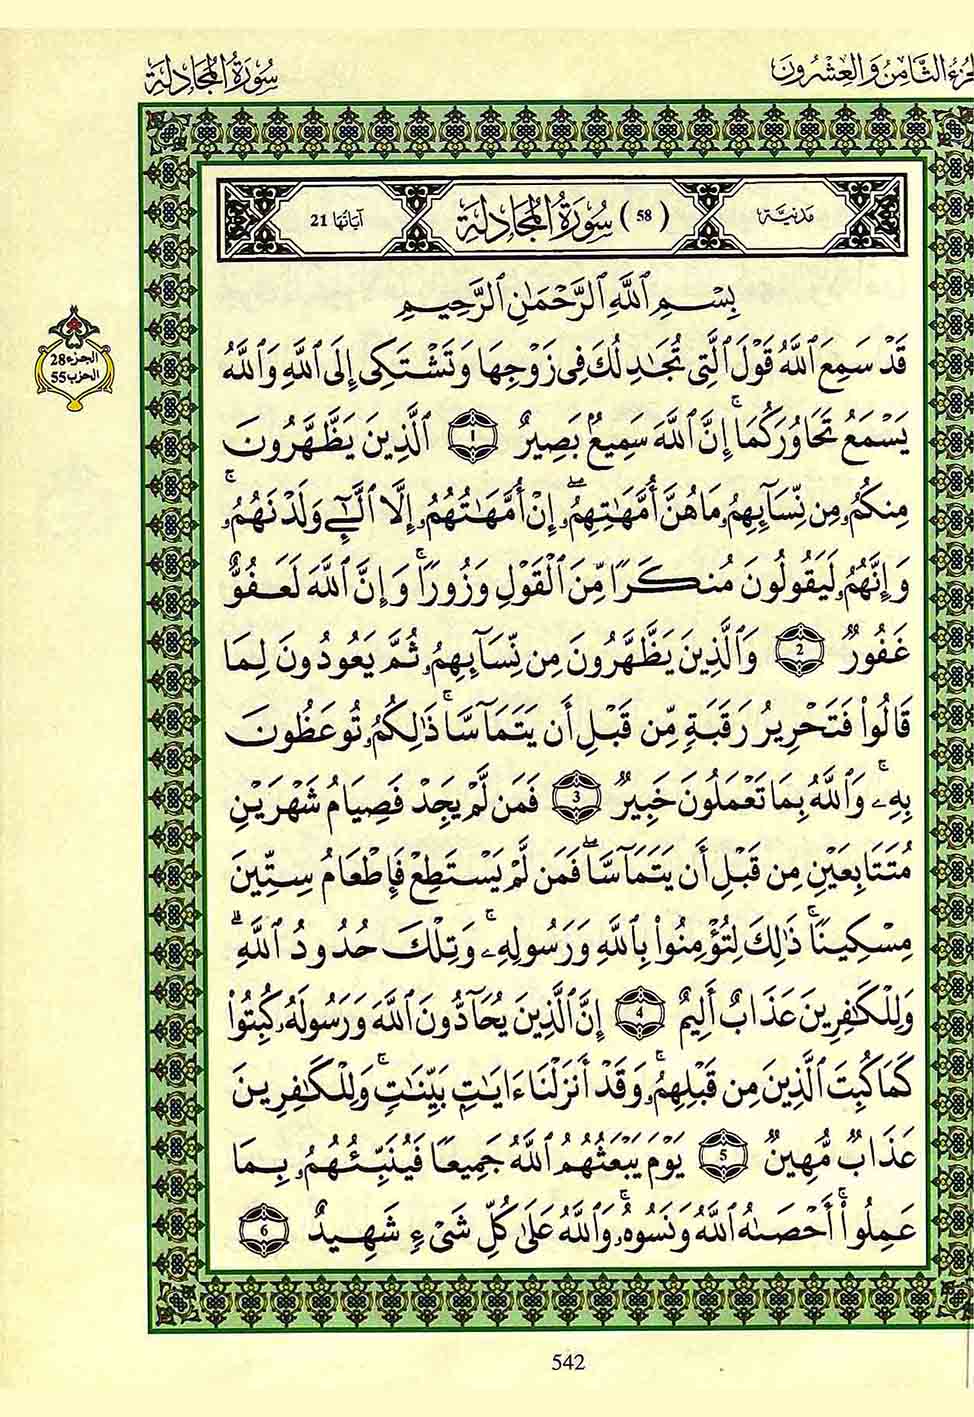 الجزءُ الثَّامِنُ وَالعِشْرُونَ
سُورَةُ المُجَادلَة
مَدَنِيَّة
(58) سُورَةُ المُجَادلَة
آيَاتُهَا 21
بِسْمِ ٱللَّهِ ٱلرَّحْمَٰنِ ٱلرَّحِيمِ
قَدْ سَمِعَ ٱللَّهُ قَوْلَ ٱلَّتِي تُجَٰدِلُكَ فِي زَوْجِهَا وَتَشْتَكِي إِلَى ٱللَّهِ وَٱللَّهُ
يَسْمَعُ تَحَاوُرَكُمَاۚ إِنَّ ٱللَّهَ سَمِيعٌۢ بَصِيرٌ 1 ٱلَّذِينَ يَظَّهَّرُونَ
مِنكُمُۥ مِن نِّسَآئِهِمُۥ مَا هُنَّ أُمَّهَٰتِهِمُۥۖ إِنْ أُمَّهَٰتُهُمُۥ إِلَّا ٱلَّٰٓـِٔ وَلَدْنَهُمُۥۚ
وَإِنَّهُمُۥ لَيَقُولُونَ مُنكَرًا مِّنَ ٱلْقَوْلِ وَزُورًاۚ وَإِنَّ ٱللَّهَ لَعَفُوٌّ
غَفُورٌ 2 وَٱلَّذِينَ يَظَّهَّرُونَ مِن نِّسَآئِهِمُۥ ثُمَّ يَعُودُونَ لِمَا
قَالُواْ فَتَحْرِيرُ رَقَبَةٍ مِّن قَبْلِ أَن يَتَمَآسَّاۚ ذَٰلِكُمُۥ تُوعَظُونَ
بِهِۦۚ وَٱللَّهُ بِمَا تَعْمَلُونَ خَبِيرٌ 3 فَمَن لَّمْ يَجِدْ فَصِيَامُ شَهْرَيْنِ
مُتَتَابِعَيْنِ مِن قَبْلِ أَن يَتَمَآسَّاۖ فَمَن لَّمْ يَسْتَطِعْ فَإِطْعَامُ سِتِّينَ
مِسْكِينًاۚ ذَٰلِكَ لِتُؤْمِنُواْ بِٱللَّهِ وَرَسُولِهِۦۚ وَتِلْكَ حُدُودُ ٱللَّهِۗ
وَلِلْكَٰفِرِينَ عَذَابٌ أَلِيمٌ 4 إِنَّ ٱلَّذِينَ يُحَآدُّونَ ٱللَّهَ وَرَسُولَهُۥ كُبِتُواْ
كَمَا كُبِتَ ٱلَّذِينَ مِن قَبْلِهِمُۥۚ وَقَدْ أَنزَلْنَا ءَايَٰتِۭ بَيِّنَٰتٍۚ وَلِلْكَٰفِرِينَ
عَذَابٌ مُّهِينٌ 5 يَوْمَ يَبْعَثُهُمُ ٱللَّهُ جَمِيعًا فَيُنَبِّئُهُمُۥ بِمَا
عَمِلُواْۚ أَحْصَىٰهُ ٱللَّهُ وَنَسُوهُۥۚ وَٱللَّهُ عَلَىٰ كُلِّ شَيْءٍ شَهِيدٌ 6
الجزء 28
الحزب 55
542